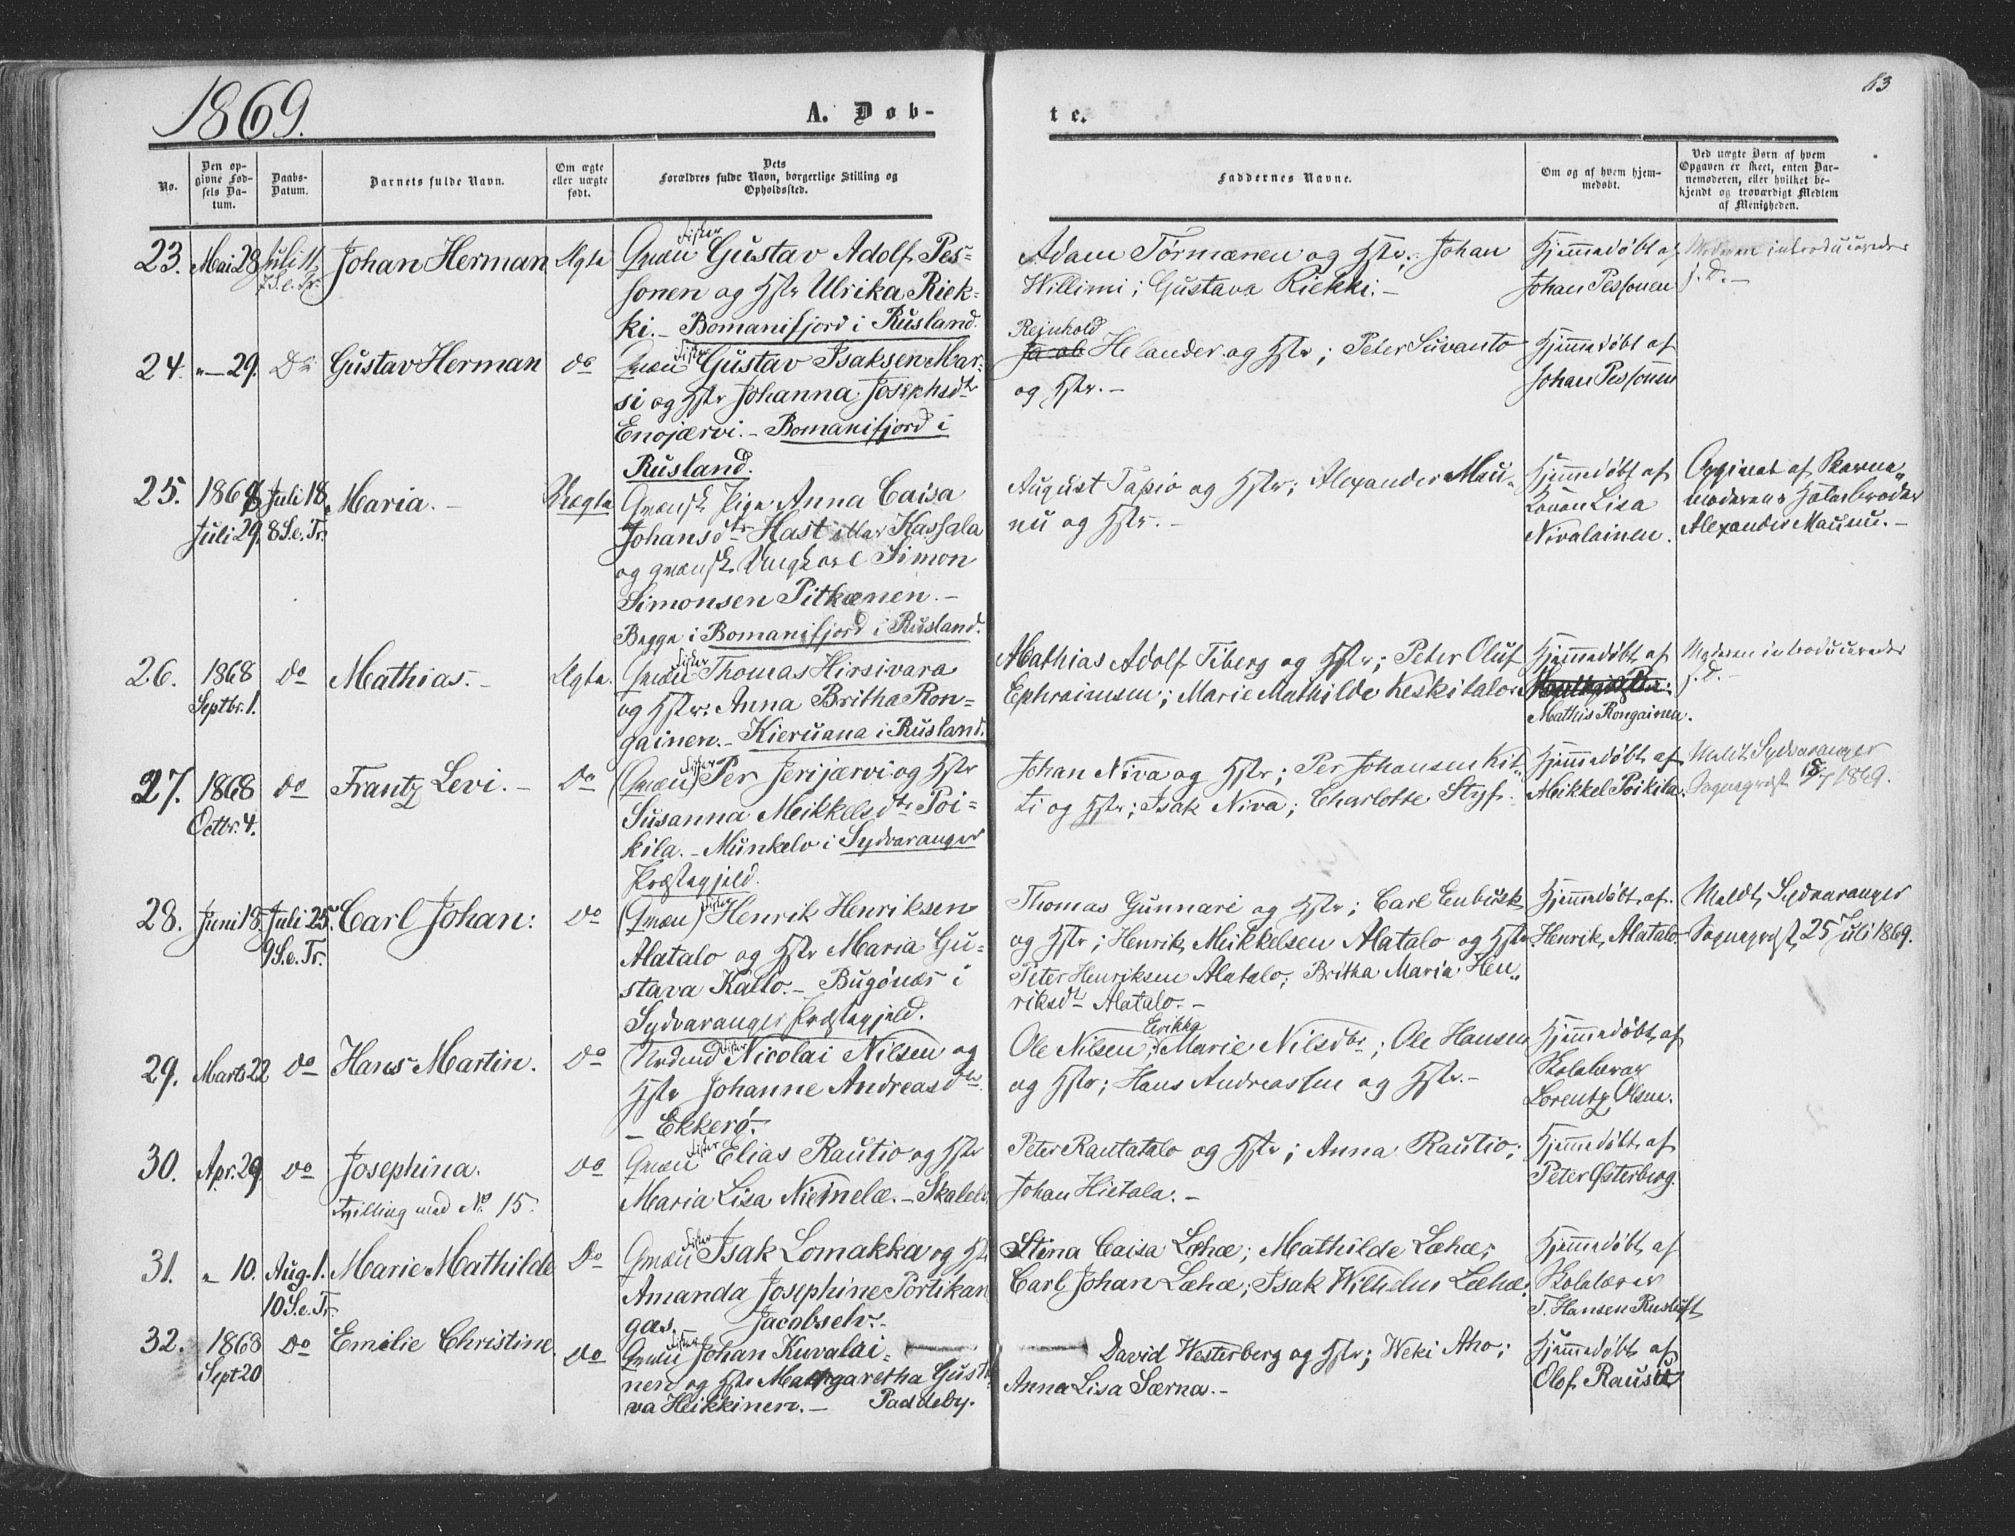 1869.
A. Døb-
te.
63
No.
Den op-
givne Fød-
sels Da-
tum.
Daabs-
Datum.
Barnets fulde Navn.
Om ægte
eller uægte
født.
Dets
Forældres fulde Navn, borgerlige Stilling og
Opholdssted.
Faddernes Navne.
Om og af hvem hjem-
medøbt.
Ved uægte Børn af hvem
Opgaven er skeet, enten Bar-
nemoderen, eller hvilket be-
kjendt og troværdigt Medlem
af Menigheden.
23. Mai 28 Juli 11
7 S. e. Tr.
Johan Herman
Ægte
Qvæn Fisker Gustav Adolf Pes-
sonen og Hstr Ulrika Riek-
ki. - Bomanifjord i Rusland.
Adam Tørmænen og Hstr; Johan
Willimi; Gustava Riekki. -
Hjemmedøbt af
Johan Pessonen
Moderen introduceredes
s. D. -
24. " - 29. Do
Gustav Herman
do
Qvæn Fisker Gustav Isaksen Mar-
si og Hstr Johanna Josephsdtr
Enojærvi. - Bomanifjord i
Rusland.
Reinhold
Jacob Helander og Hstr; Peter Suvanto
og Hstr. -
Hjemmedøbt af
Johan Pessonen
25. 1868
Juli 29.
Juli 18.
8 S. e. Tr.
Maria. -
Uægte
Qvænsk Pige Anna Caisa
Johansdtr Hast eller Kassala
og qvænsk Ungkarl Simon
Simonsen Pitkænen. -
Begge i Bomanifjord i Rusland.
August Tapio og Hstr; Alexander Mau-
nu og Hstr. -
Hjemmedøbt af
Konen Lisa
Nivalainen.
Opgivet af Barne-
moderens Halvbroder
Alexander Maunu. -
26. 1868
Septbr. 1.
do
Mathias. -
Ægte.
Qvæn Fisker Thomas Hirsivara
og Hstr: Anna Britha Ron-
gainen. - Kieruana i Rusland.
Mathias Adolf Tiberg og Hstr; Peter Oluf
Ephraimsen; Marie Mathilde Keskitalo
Hjemmedøbt af
Mathis Rongainen.
Moderen introduceredes
s. D. -
27. 1868
Octbr. 4.
do
Frantz Levi. -
Do
(Qvæn) Fisker Per Jerijærvi og Hstr
Susanna Meikkelsdtr Poi-
kila. - Munkelv i Sydvaranger
Præstegjeld.
Johan Niva og Hstr; Per Johansen Kit-
ti og Hstr; Isak Niva; Charlotte Styf.
Hjemmedøbt af
Meikkel Poikila.
Meldt Sydvaranger
Sognepræst 18/7 1869.
28. Juni 18. Juli 25.
9 S. e. Tr.
Carl Johan:
do
(Qvæn) Fisker Henrik Henriksen
Alatalo og Hstr Maria Gu-
stava Kallo. - Bugønæs i
Sydvaranger Præstegjeld.
Thomas Gunnari og Hstr; Carl Enbusk
og Hstr; Henrik Meikkelsen Alatalo og Hstr
Peter Henriksen Alatalo; Britha Maria Hen-
riksdtr Alatalo. -
Hjemmedøbt af
Henrik Alatalo.
Meldt Sydvaranger
Sognepræst 25 Juli 1869.
29. Marts 22 do
Hans Martin.
Do
Nordmd Fisker Nicolai Nilsen og
Hstr Johanne Andreasdtr
- Ekkerø. -
Ole Nilsen; Erikka Marie Nilsdtr; Ole Hansen
og Hstr; Hans Andreassen og Hstr. -
Hjemmedøbt af
Skolelærer
Lorentz Olsen.
30. Apr. 29 do
Josephina.
Tvilling med No 15.
do
Qvæn Fisker Elias Rautio og Hstr
Maria Lisa Niemelæ. - Skalelv
Peter Rautatalo og Hstr; Anna Rautio;
Johan Hietala. -
Hjemmedøbt af
Peter Østerberg.
31. " 10. Aug. 1.
10 S. e. Tr.
Marie Mathilde
Do
Qvæn Fisker Isak Lomakka og Hstr
Amanda Josephine Portikan
gas. Jacobselv. -
Stina Caisa Læhæ; Mathilde Læhæ;
Carl Johan Læhæ; Isak Wilhelm Læhæ.
Hjemmedøbt af
Skolelærer
T. Hansen Rusleft
32. 1868
Sept 20
do
Emilie Christine
do
Qvæn Fisker Johan Kuvalai-
nen og Hstr Margaretha Gusta
va Heikkinen. - Paddeby.
David Westerberg og Hstr; Weki Aho;
Anna Lisa Særna. -
Hjemmedøbt af
Olof Rautio